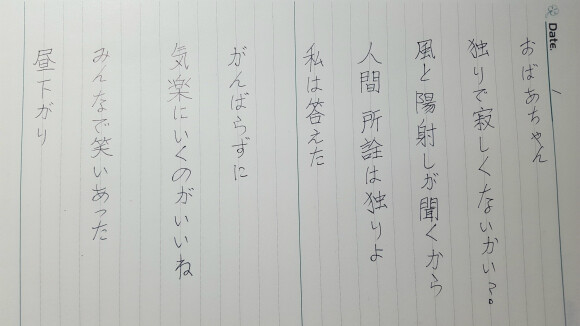 Date
おばあちゃん
独りで寂しくないかい?
風と陽射しが聞くから
人間 所詮は独りよ
私は答えた
がんばらずに
気楽にいくのがいいね
みんなで笑いあった
昼下がり